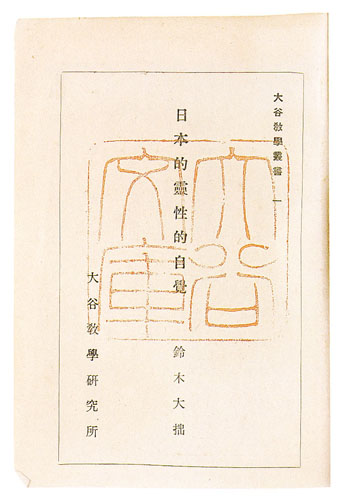 大谷敎學叢書 一
日本的靈性的自覺
鈴木大拙
大谷敎學硏究所
大谷
文庫